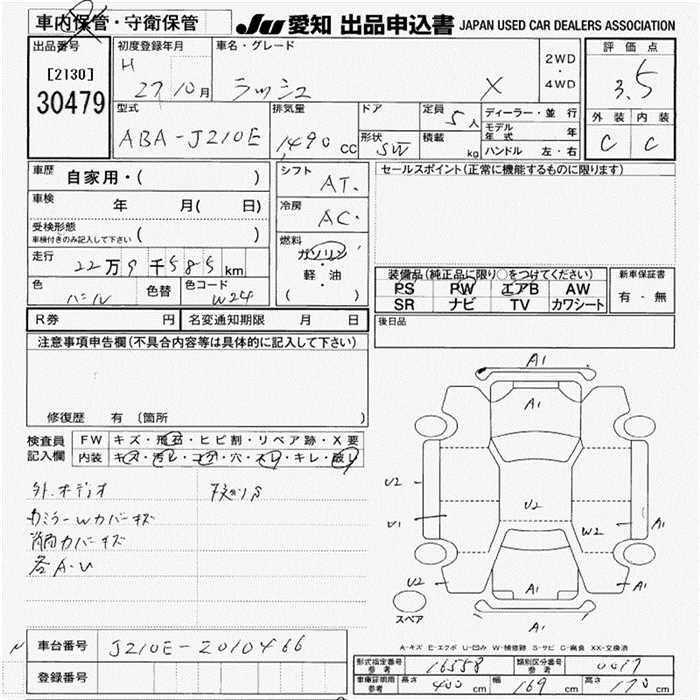 車内保管・守衛保管
JU 愛知 出品申込書 JAPAN USED CAR DEALERS ASSOCIATION
出品番号
[2130]
30479
初度登録年月
H 27 10月
車名・グレード
ラッシュ X
2WD
・
4WD
評価点
3.5
外装 内装
C C
型式
ABA-J210E
排気量
1,490 cc
ドア
形状 SW
定員 5人
積載 kg
ディーラー・並行
モデル年式 年
ハンドル 左・右
車歴 自家用・( )
車検 年 月( 日)
受検形態
車検付きのみ記入して下さい ( )
走行 22万9千585km
色 パール 色替 色コード W24
シフト AT.
冷房 AC.
燃料
ガソリン
・
軽・油
( )
セールスポイント(正常に機能するものに限ります)
装備品(純正品に限り○をつけてください)
PS PW エアB AW
SR ナビ TV カワシート
新車保証書
有・無
後日品
R券 円 名変通知期限 月 日
注意事項申告欄(不具合内容等は具体的に記入して下さい)
修復歴 有 (箇所 )
検査員記入欄
FW キズ・飛石・ヒビ割・リペア跡・X要
内装 キズ・汚レ・コゲ・穴・スレ・キレ・破レ
外.オーディオ
カミラーWカバーキズ
各A.U
A1
A1
U2
U1
U2
W2
A1
U2
A1
A1
A1
スペア
A-キズ E-エクボ U-凹み W-補修跡 S-サビ C-腐食 XX-交換済
N
車台番号 J210E-2010466
登録番号
形式指定番号 参考 16558 類別区分番号 参考 0017
車庫証明用 参考 高さ 400 cm 幅 169 cm 高さ 170 cm